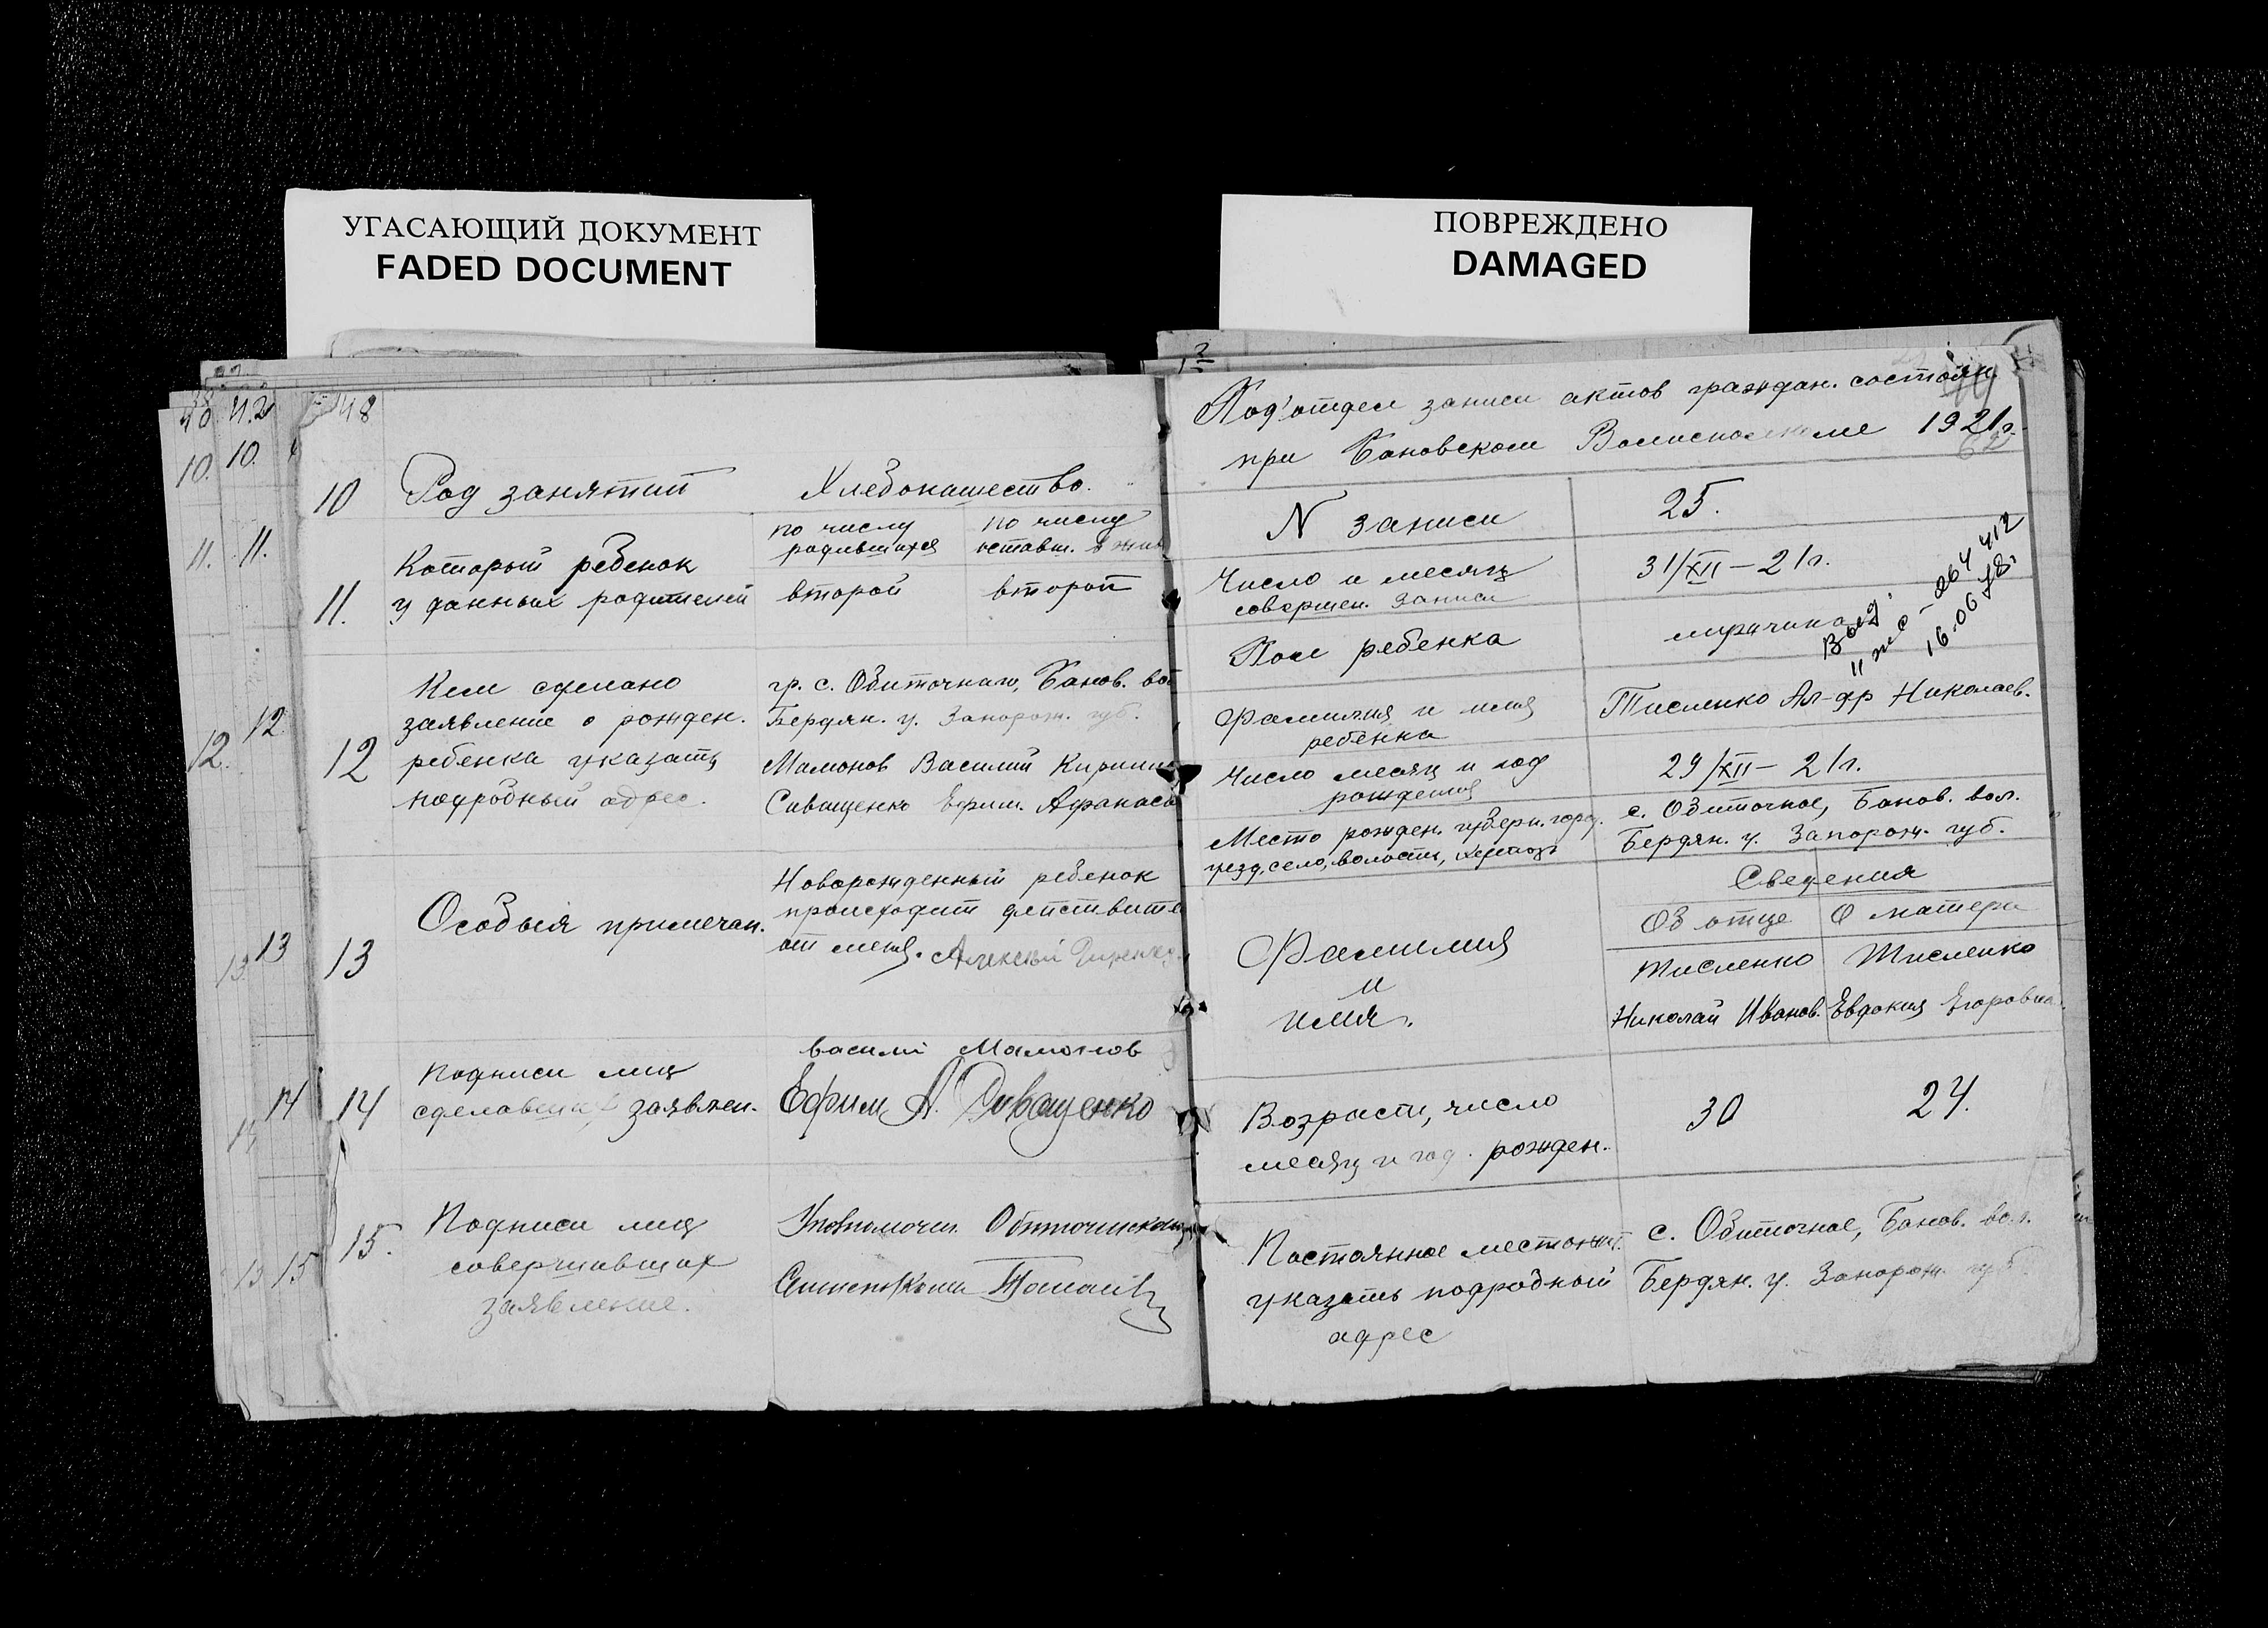 УГАСАЮЩИЙ ДОКУМЕНТ
FADED DOCUMENT
48
10 Род занятий Хлебопашество.
11. Который ребенок у данных родителей
по числу родившихся
по числу оставш. в жив
второй второй
12 Кем сделано
заявление о рожден.
ребенка указать
подробный адрес.
гр. с. Обиточнаго, Банов. вол
Бердян. у. Запорож. губ.
Мамонов Василий Кирилл
Сиващенко Ефим. Афанась
13 Особыя примечан.
Новорожденный ребенок
происходит действител
от меня. Алексей
14 Подписи лиц
сделавших заявлен.
василий Мамонов
Ефим А. Сиващенко
15. Подписи лиц
совершивших
заявление.
Уполномочен. Обиточинской
ПОВРЕЖДЕНО
DAMAGED
Под'отдел записи актов граждан. состоян.
при Бановском Волисполкоме 1921г.
N записи 25.
Число и месяц
совершен. записи
31/XII – 21г.
Пол ребенка мужчина
Выд.
16.06.78г
Фамилия и имя
ребенка
Тисленко Ал-др Николаев.
Число месяц и год
рождения
29/XII – 21г.
Место рожден. губерн. город.
уезд, село, волость, хутор
с. Обиточное, Банов. вол.
Бердян. у. Запорож. губ.
Сведения
Об отце О матери
Фамилия
и
имя.
Тисленко Тисленко
Николай Иванов. Евдокия Егоровна.
Возраст, число
месяц и год. рожден.
30 24.
Постоянное местожит.
указать подробный
адрес
с. Обиточное, Банов. вол.
Бердян. у. Запорож. губ